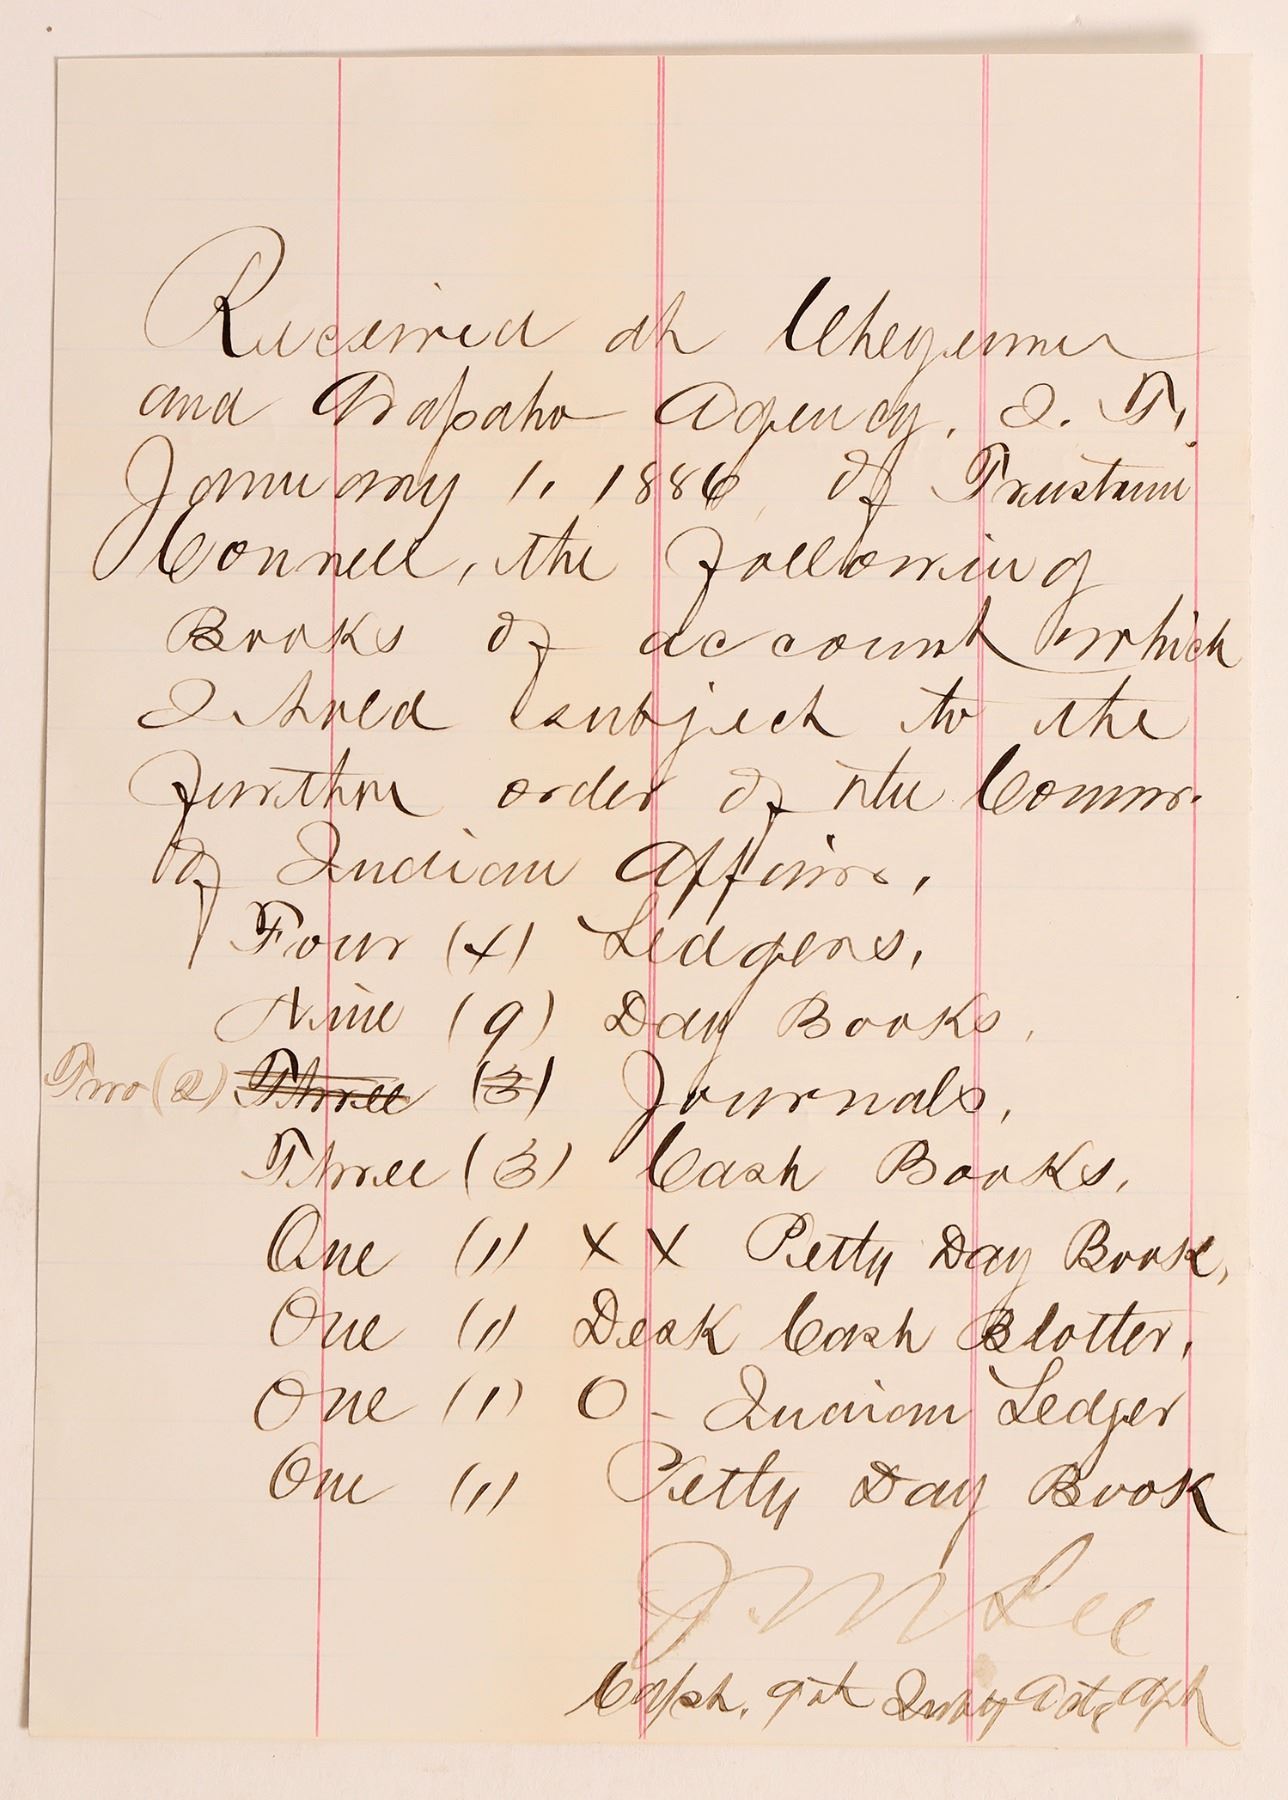 Received at Cheyenne
and Arapaho Agency, I. T.
January 1, 1886, of Trustum
Connell, the following
Books of account which
I hold subject to the
further order of the Commr.
of Indian Affairs,
Four (4) Ledgers,
Nine (9) Day Books,
Two (2) Three (3) Journals,
Three (3) Cash Books,
One (1) X X Petty Day Book,
One (1) Desk Cash Blotter,
One (1) O - Indian Ledger
One (1) Petty Day Book
J. M Lee
Capt. 9th Infty Actg Agt